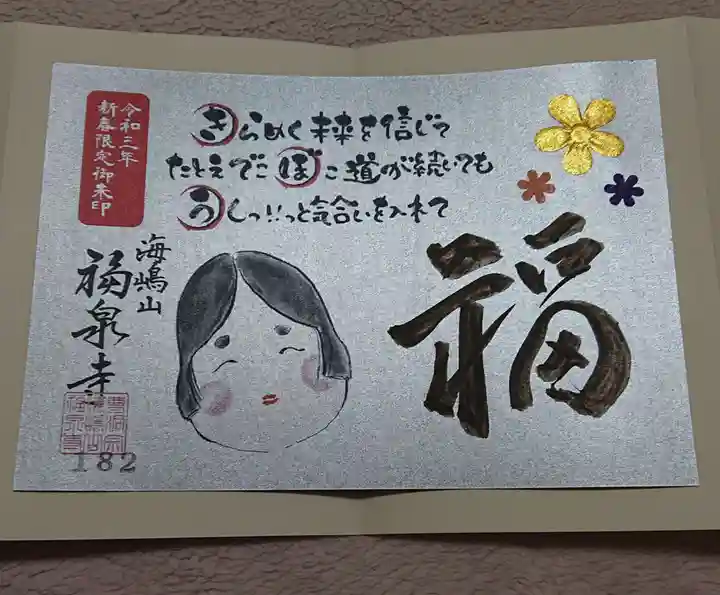 きらめく未来を信じて
たとえでこぼこ道が続いても
うしっ!!っと気合いを入れて
福
令和三年
新春限定御朱印
海嶋山
福泉寺
182